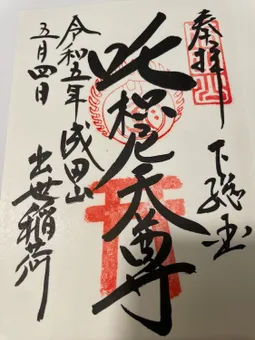 奉拝
下総国
吒枳尼天尊
令和五年成田山
五月四日
出世稲荷